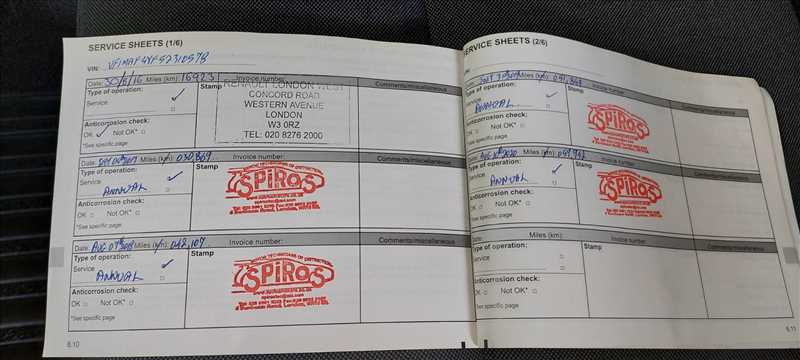 SERVICE SHEETS (1/6)
VIN:
Date: 30/6/16 Miles (km): 16923 Invoice number:
Type of operation:
Stamp
Comments/miscellaneous
Service
RENAULT LONDON WEST
CONCORD ROAD
WESTERN AVENUE
LONDON
W3 0RZ
TEL: 020 8276 2000
Anticorrosion check:
OK ✓ Not OK* □
*See specific page
Date: Miles (km): 030,869 Invoice number:
Type of operation:
Stamp
Comments/miscellaneous
Service ✓
ANNUAL □
MOTOR TECHNICIANS OF DISTINCTION
SPIROS
Anticorrosion check:
OK □ Not OK* □
*See specific page
Date: Miles (km): 042,107 Invoice number:
Type of operation:
Stamp
Comments/miscellaneous
Service ✓
ANNUAL □
MOTOR TECHNICIANS OF DISTINCTION
SPIROS
Anticorrosion check:
OK □ Not OK* □
*See specific page
6.10
SERVICE SHEETS (2/6)
VIN:
Invoice number:
Comments/miscellaneous
Type of operation:
Stamp
Service ✓
ANNUAL □
SPIROS
Anticorrosion check:
OK □ Not OK* □
*See specific page
Invoice number:
Comments/miscellaneous
Type of operation:
Stamp
Service ✓
ANNUAL □
SPIROS
Anticorrosion check:
OK □ Not OK* □
*See specific page
Date: Miles (km): Invoice number:
Type of operation:
Stamp
Comments/miscellaneous
Service □
□
Anticorrosion check:
OK □ Not OK* □
*See specific page
6.11